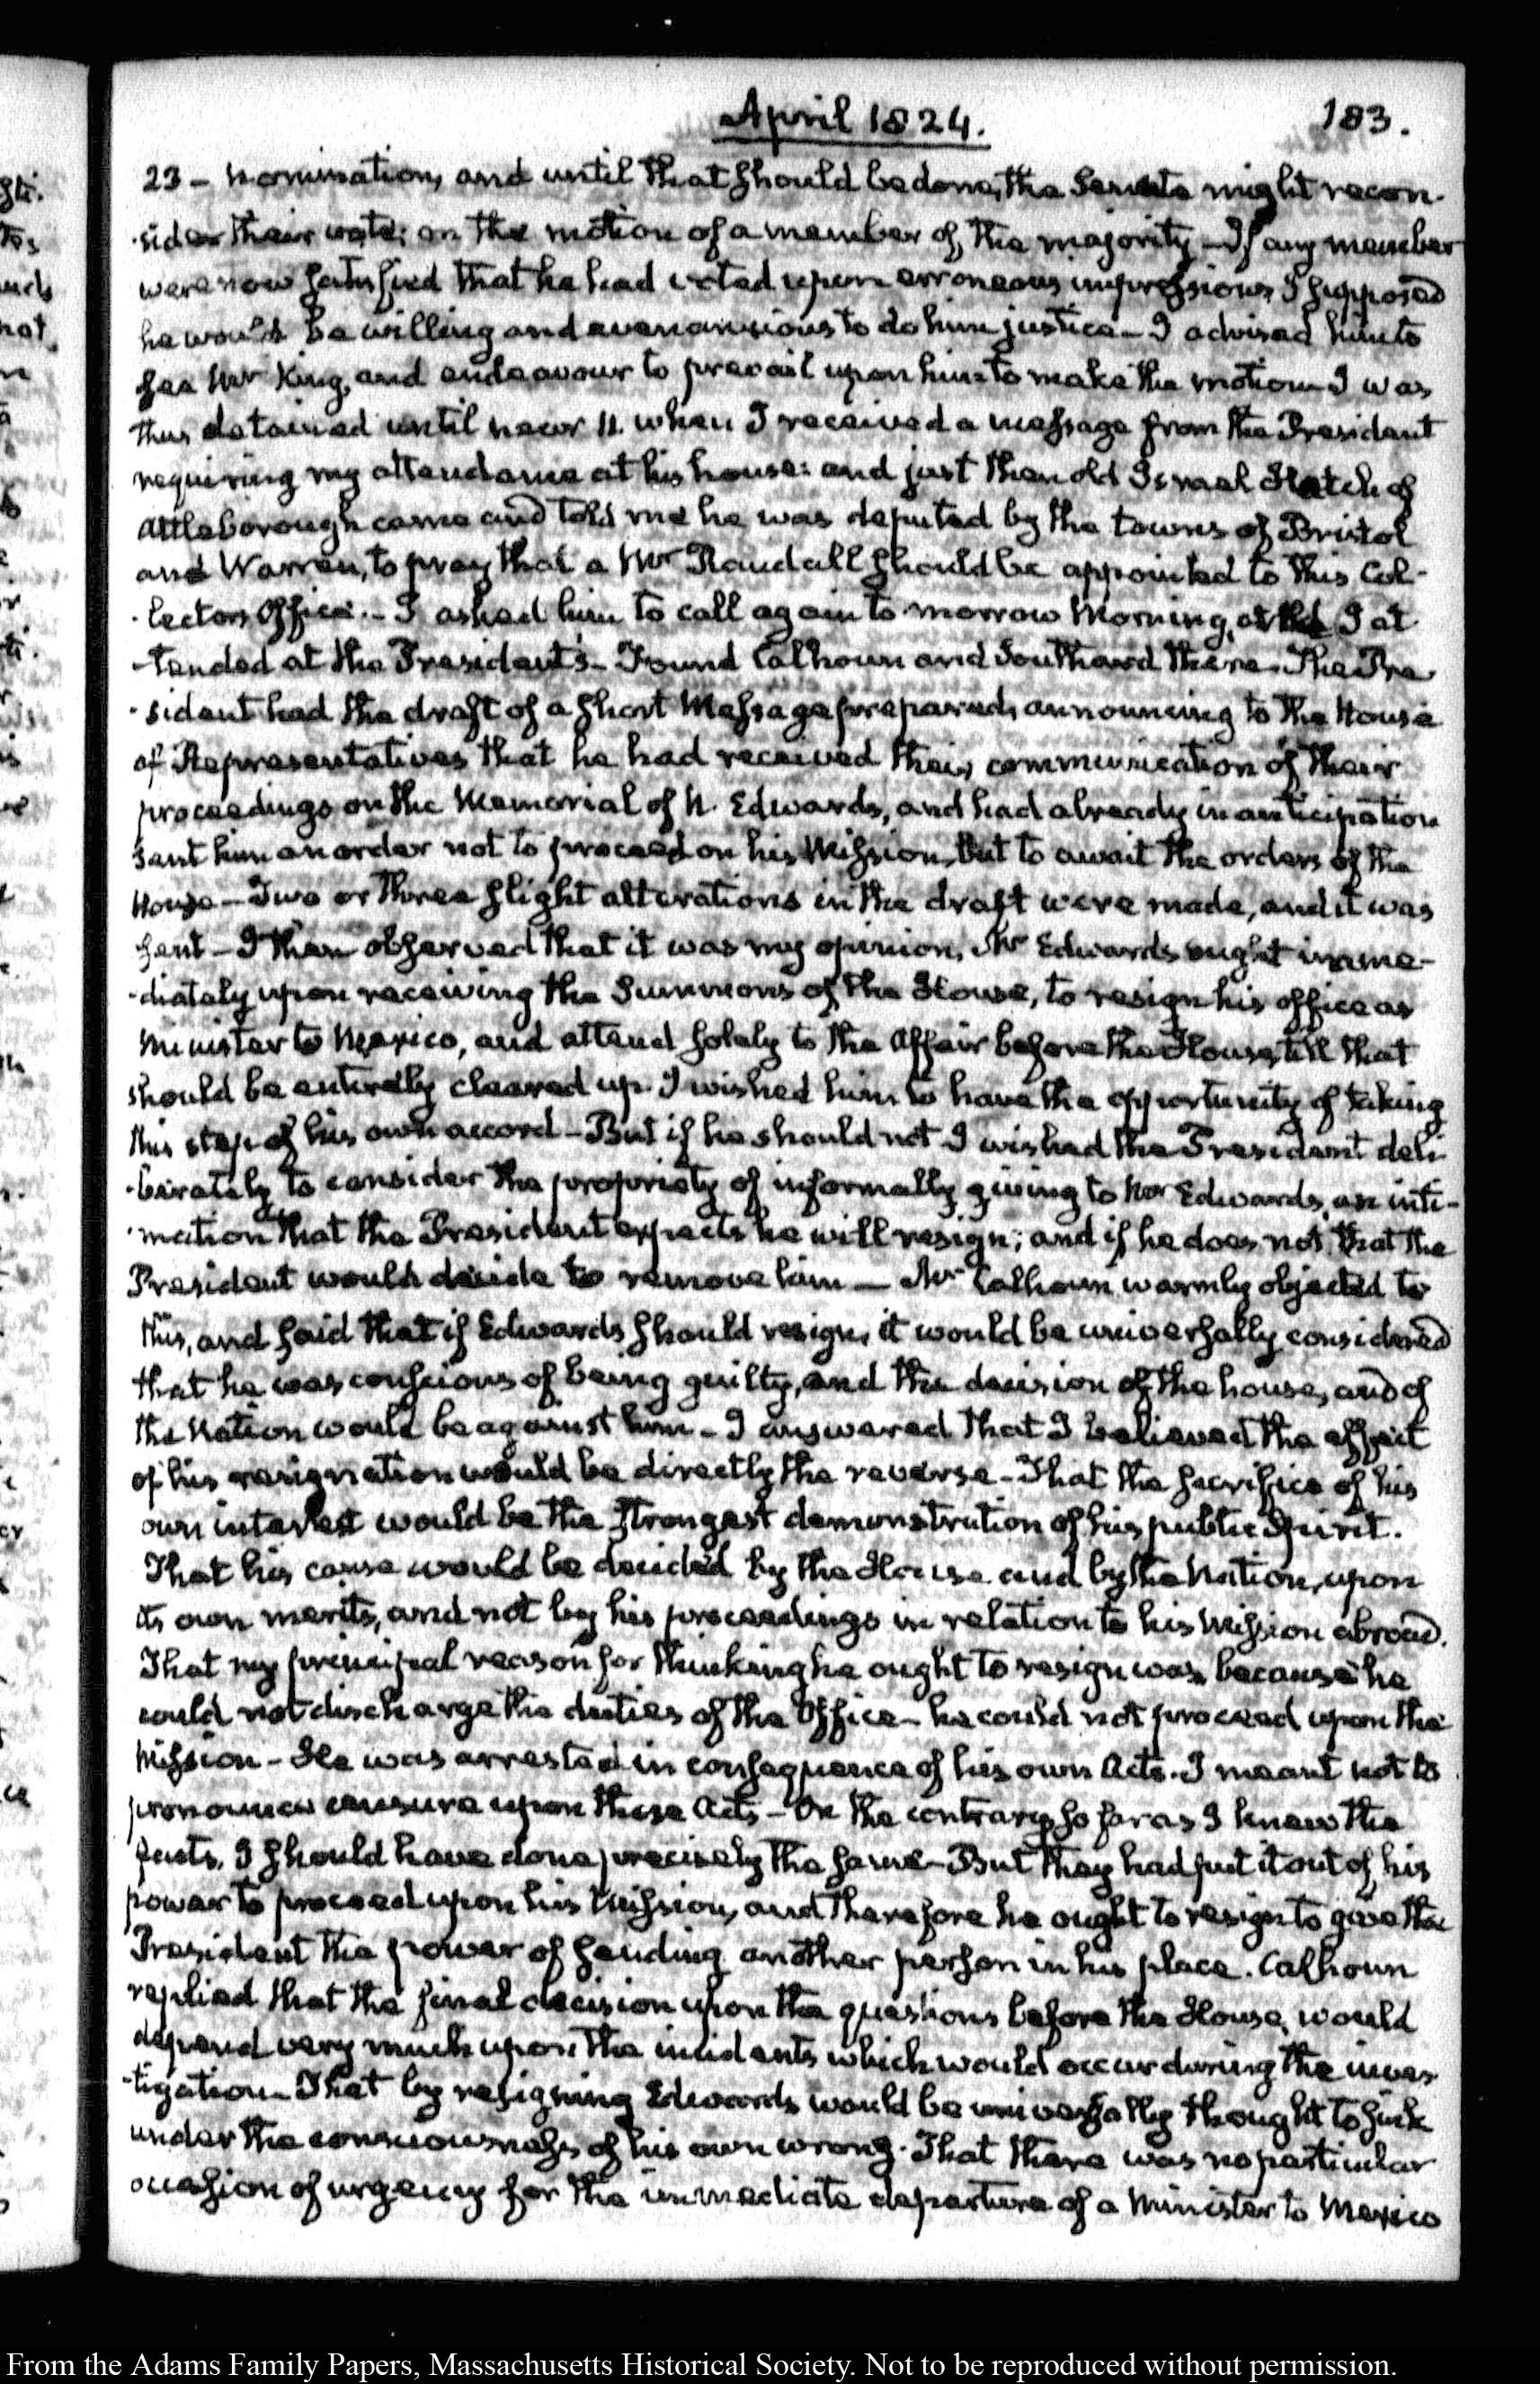 April 1824. 183.
23 – nomination, and until that should be done, the Senate might recon-
-sider their vote; on the motion of a member of the majority – If any member
were now satisfied that he had voted upon erroneous impressions I supposed
he would be willing and even anxious to do him justice – I advised him to
see Mr King, and endeavour to prevail upon him to make the motion – I was
thus detained until near 11. when I received a message from the President
requiring my attendance at his house: and just then old Israel Hatch of
Attleborough came and told me he was deputed by the towns of Bristol
and Warren, to pray that a Mr Randall should be appointed to this Col-
-lectors Office. – I asked him to call again to morrow Morning, and I at
-tended at the President's – Found Calhoun and Southard there – The Pre
-sident had the draft of a short Message prepared, announcing to the House
of Representatives that he had received their communication of their
proceedings on the Memorial of N. Edwards, and had already in anticipation
sent him an order not to proceed on his Mission, but to await the orders of the
House – Two or three slight alterations in the draft were made, and it was
sent – I then observed that it was my opinion, Mr Edwards ought imme-
-diately upon receiving the Summons of the House, to resign his office as
Minister to Mexico, and attend solely to the Affair before the House, till that
should be entirely cleared up. I wished him to have the opportunity of taking
this step of his own accord – But if he should not I wished the President deli-
-berately to consider the propriety of informally giving to Mr Edwards, an inti-
-mation that the President expects he will resign; and if he does not, that the
President would decide to remove him – Mr Calhoun warmly objected to
this, and said that if Edwards should resign, it would be universally considered
that he was conscious of being guilty, and the decision of the house, and of
the Nation would be against him – I answered that I believed the effect
of his resignation would be directly the reverse – That the sacrifice of his
own interest would be the strongest demonstration of his public Spirit.
That his cause would be decided by the House and by the Nation, upon
its own merits, and not by his proceedings in relation to his Mission abroad.
That my principal reason for thinking he ought to resign was, because he
could not discharge the duties of the Office – he could not proceed upon the
Mission – He was arrested in consequence of his own Acts. I meant not to
pronounce censure upon these Acts – On the contrary so far as I knew the
facts, I should have done precisely the same – But they had put it out of his
power to proceed upon his Mission, and therefore he ought to resign to give the
President the power of sending another person in his place. Calhoun
replied that the final decision upon the questions before the House, would
depend very much upon the incidents which would occur during the inves-
-tigation – That by resigning Edwards would be universally thought to sink
under the consciousness of his own wrong. That there was no particular
occasion of urgency for the immediate departure of a Minister to Mexico
From the Adams Family Papers, Massachusetts Historical Society. Not to be reproduced without permission.